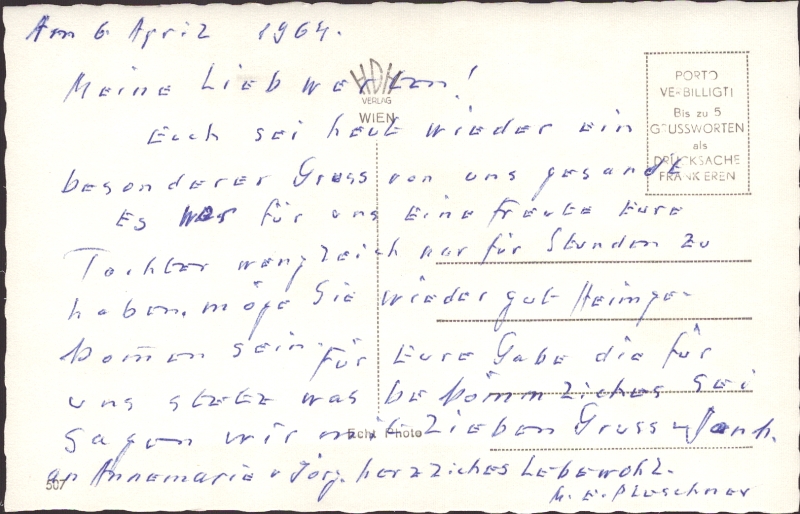 Am 6 April 1964.
Meine Liebwerten!
HDH
VERLAG
WIEN
PORTO
VERBILLIGT!
Bis zu 5
GRUSSWORTEN
als
DRUCKSACHE
FRANKIEREN
Euch sei heut wieder ein
besonderer Gruss von uns gesandt
Es war für uns eine freute Eure
Tochter wenglzeich nur für Stunden zu
haben. möge Sie wieder gut Heimge-
kom̄en sein. Für Eure Gabe die für
uns stetz was bekömmliches sei
sagen wir mit Lieben Gruss u Dank.
Echt Photo
an Annemarie u Jörg. herzliches Lebewohl.
507